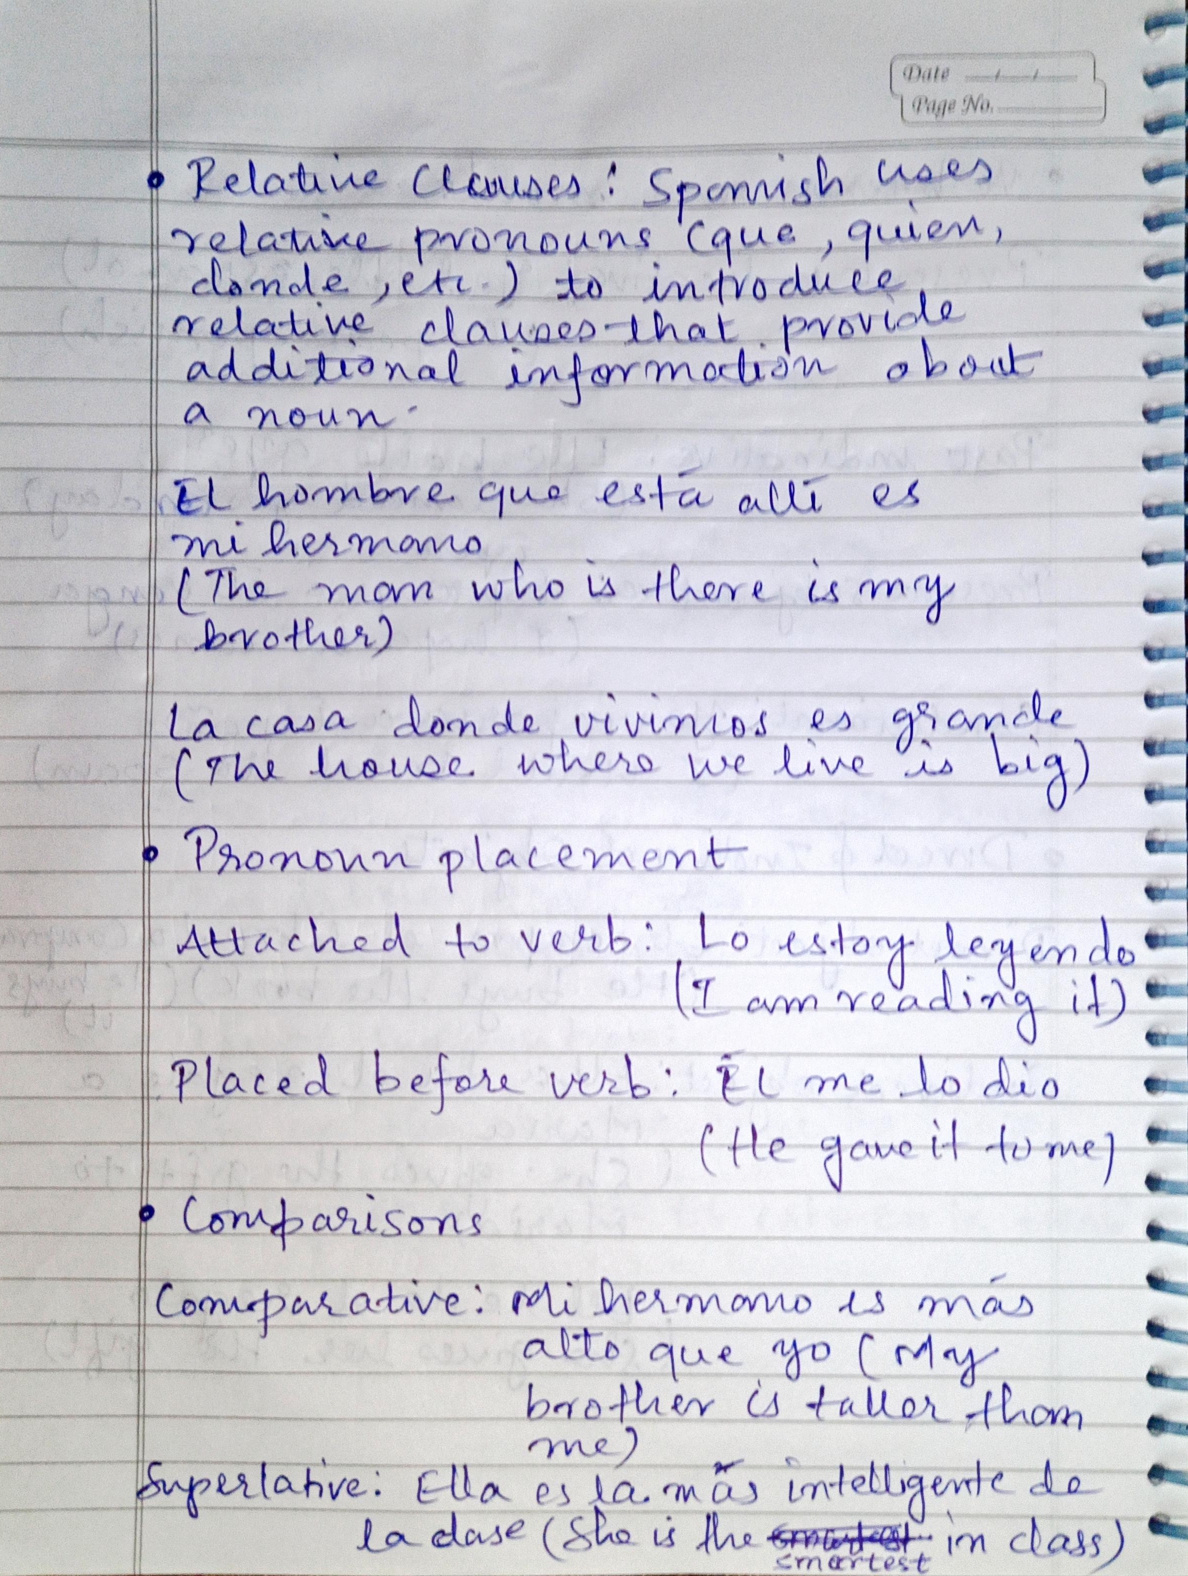 Date / /
Page No.
• Relative Clauses: Spanish uses
relative pronouns (que, quien,
donde, etc.) to introduce
relative clauses that provide
additional information about
a noun.
El hombre que está allí es
mi hermano
(The man who is there is my
brother)
La casa donde vivimos es grande
(The house where we live is big)
• Pronoun placement
Attached to verb: Lo estoy leyendo
(I am reading it)
Placed before verb: Él me lo dio
(He gave it to me)
• Comparisons
Comparative: Mi hermano es más
alto que yo (My
brother is taller than
me)
Superlative: Ella es la más intelligente de
la clase (She is the smartest in class)
smartest